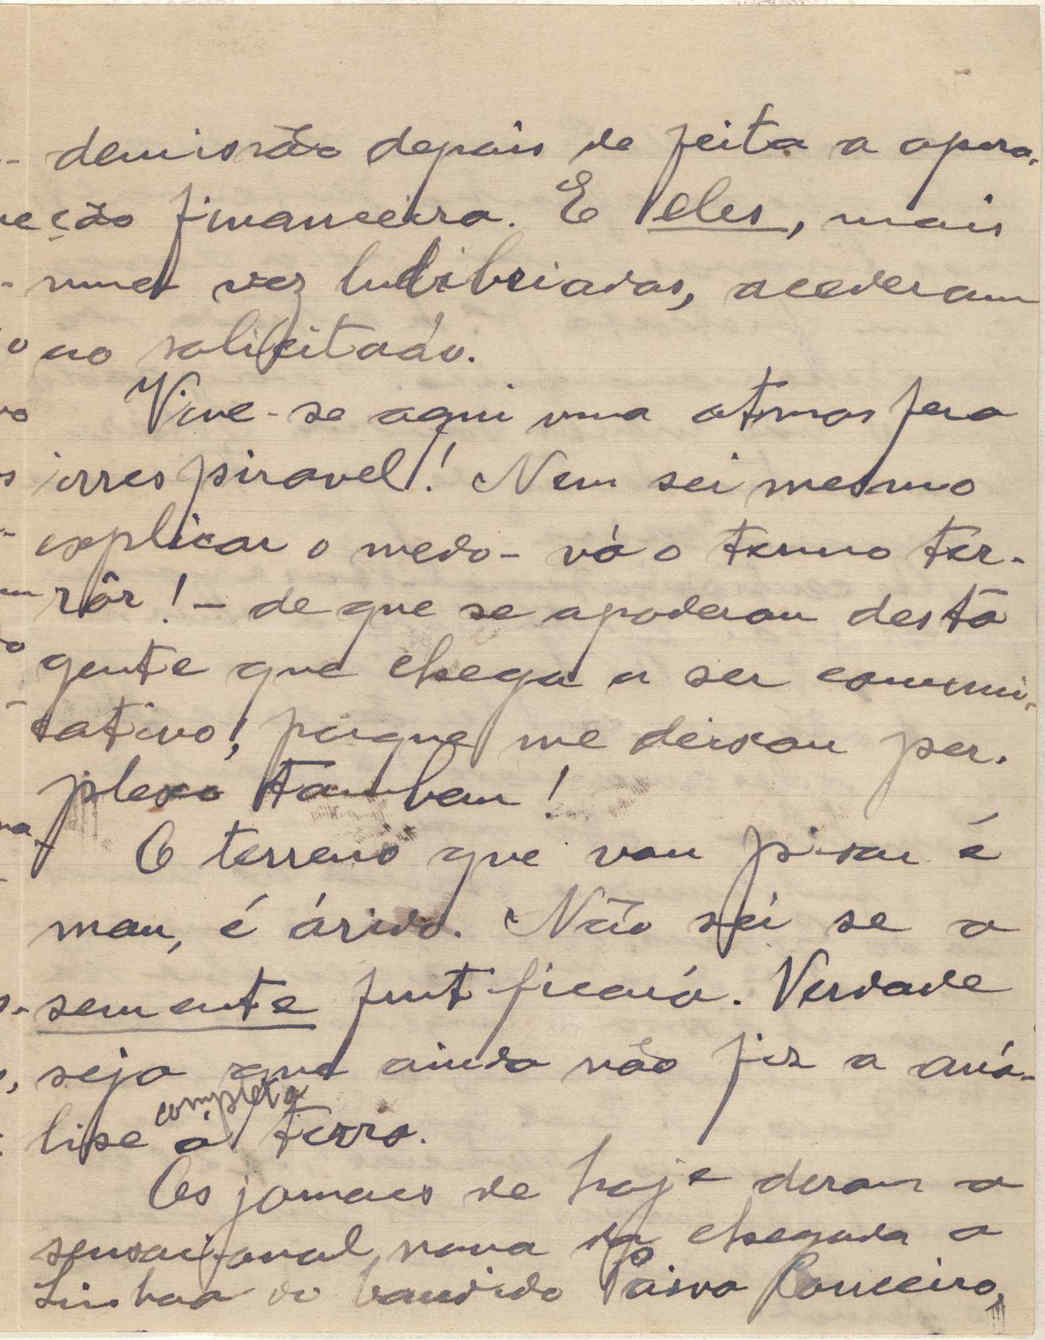 demissão depois de feita a opera-
ção financeira. E eles, mais
uma vez ludibriadas, acederam
ao solicitado.
Vive-se aqui uma atmosfera
irrespiravel! Nem sei mesmo
explicar o medo - vá o termo ter-
rôr! - de que se apoderou desta
gente que chega a ser comuni-
cativo, porque me deixou per-
plexo tambem!
O terreno que vou pisar é
mau, é árido. Não sei se a
semente frutificará. Verdade
seja que ainda não fiz a aná-
lise completa á terra.
Os jornaes de hoje deram a
sensacional nova da chegada a
Lisboa do bandido Paiva Couceiro,